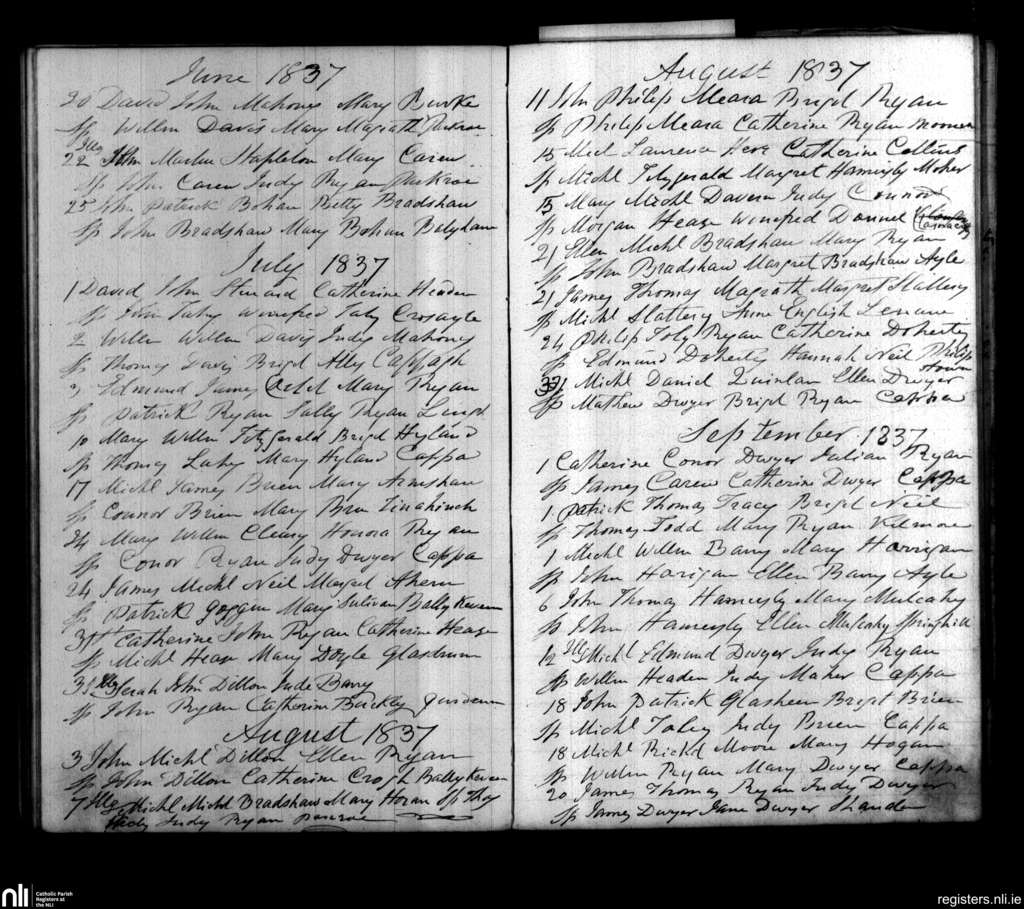 June 1837
20 David John Mahoney Mary Burke
Sp Willm Davis Mary Magrath
Illg
22 John Martin Stapleton Mary Carew
Sp John Carew Judy Ryan
25 John Patrick Bohan Betty Bradshaw
Sp John Bradshaw Mary Bohan
July 1837
1 David John Catherine Headen
Sp John Winefred
2 Willm Willm Davis Judy Mahoney
Sp Thomas Davis Brigd Cappagh
3 Edmund James Mary Ryan
Sp Patrick Ryan Sally Ryan
10 Mary Willm Fitzgerald Brigd Hyland
Sp Thomas Lahy Mary Hyland Cappa
17 Michl James Brien Mary
Sp Connor Brien Mary
24 Mary Willm Cleary Honora Ryan
Sp Conor Ryan Judy Dwyer Cappa
24 James Michl Neil Margret Ahern
Sp Patrick Mary Sulivan
31st Catherine John Ryan Catherine
Sp Michl Mary Doyle
31 Illg Sarah John Dillon Jude Barry
Sp John Ryan Catherine Buckley
August 1837
3 John Michl Dillon Ellen Ryan
Sp John Dillon Catherine
7 Illeg Michl Michl Bradshaw Mary Horan Sp Thos
Judy Ryan
August 1837
11 John Philip Meara Brigd Ryan
Sp Philip Meara Catherine Ryan
15 Michl Laurence Catherine Collins
Sp Michl Fitzgerald Margret
15 Mary Michl Davern Judy Connor
Sp Morgan Winefred Donnel
21 Ellen Michl Bradshaw Mary Ryan
Sp John Bradshaw Margret Bradshaw Ayle
21 James Thomas Magrath Margret Slattery
Sp Michl Slattery Anne English
24 Philip Toby Ryan Catherine Doherty
Sp Edmund Doherty Hannah Neil Philip
town
31 Michl Daniel Quinlan Ellen Dwyer
Sp Mathew Dwyer Brigd Ryan Cappa
September 1837
1 Catherine Conor Dwyer Julian Ryan
Sp James Carew Catherine Dwyer Cappa
1 Patrick Thomas Tracy Brigd Neil
Sp Thomas Todd Mary Ryan Kilmore
1 Michl Willm Barry Mary Horrigan
Sp John Horigan Ellen Barry Ayle
6 John Thomas Hammersly Mary Mulcahy
Sp John Hammersly Ellen Mulcahy Springhill
12 Illg Michl Edmund Dwyer Judy Ryan
Sp Willm Headen Judy Maher Cappa
18 John Patrick Glasheen Brigd Brien
Sp Michl Judy Brien Cappa
18 Michl Richd Moore Mary Hogan
Sp Willm Ryan Mary Dwyer Cappa
20 James Thomas Ryan Judy Dwyer
Sp James Dwyer Jane Dwyer
nli Catholic Parish
Registers at
the NLI
registers.nli.ie